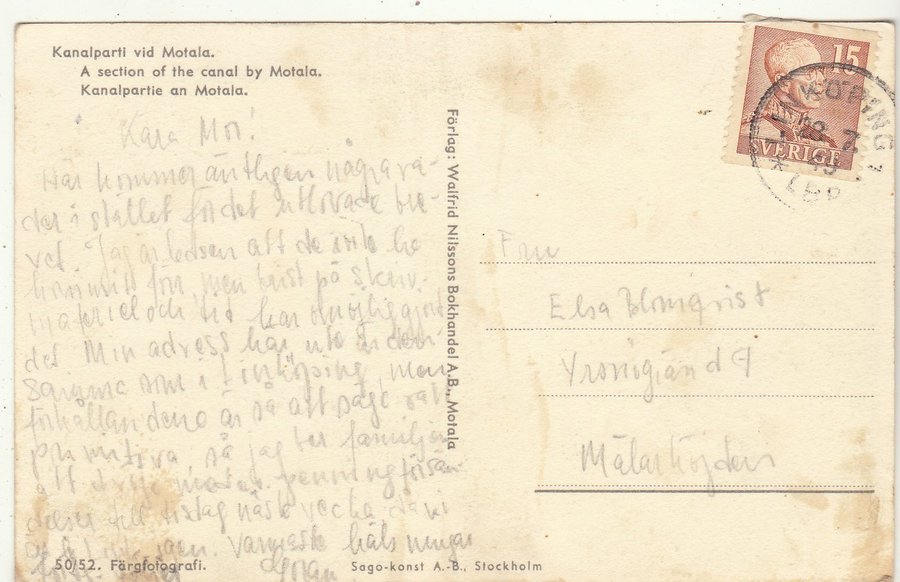 Kanalparti vid Motala.
A section of the canal by Motala.
Kanalpartie an Motala.
Kära Mor!
Här kommer äntligen några ra-
der i stället för det utlovade bre-
vet. Jag är ledsen att de inte ha
kommit förr, men brist på skriv-
materiel och tid har omöjliggjort
det. Min adress här ute är den
samma som i Linköping, men
förhållandena är så att säga rätt
primitiva, så jag ber familjen
att dröja med penningförsän-
delser till tisdag nästa vecka då vi
igen. Varmaste hälsningar
Göran
Förlag: Walfrid Nilssons Bokhandel A.B., Motala
15
SVERIGE
LINKÖPING 1
28 7
49
LBR
Fru
Elsa Blomqvist
9
Mälarhöjden
50/52. Färgfotografi.
Sago-konst A.-B., Stockholm